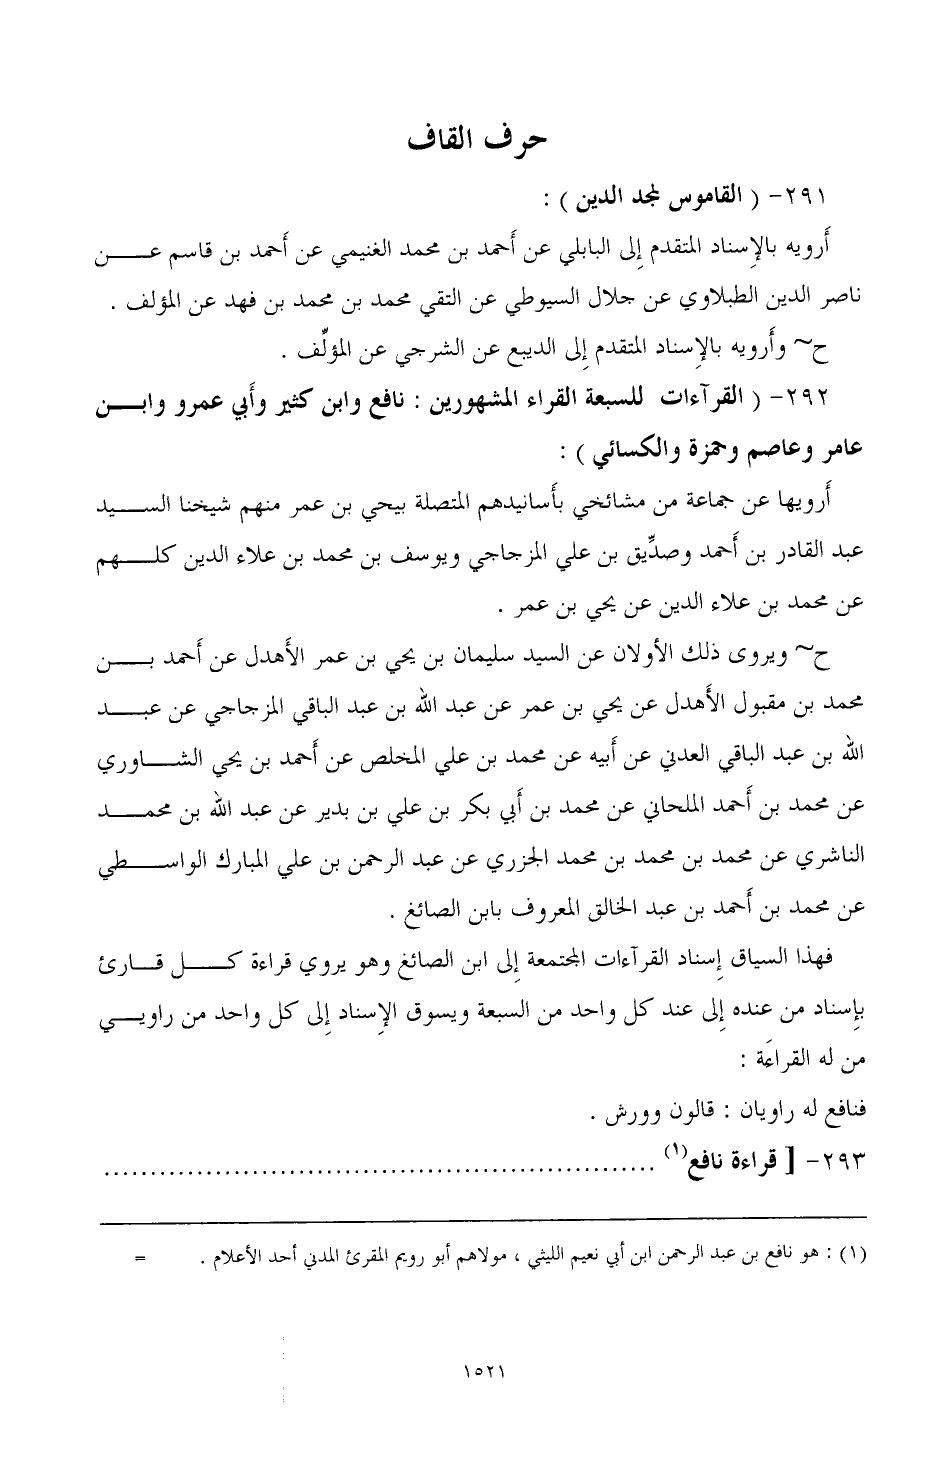 حرف القاف
٢٩١- ( القاموس لمجد الدين ) :
أرويه بالإسناد المتقدم إلى البابلي عن أحمد بن محمد الغنيمي عن أحمد بن قاسم عـــن
ناصر الدين الطبلاوي عن جلال السيوطي عن التقي محمد بن محمد بن فهد عن المؤلف .
ح~ وأرويه بالإسناد المتقدم إلى الديبع عن الشرجي عن المؤلِّف .
٢٩٢- ( القرآءات للسبعة القراء المشهورين : نافع وابن كثير وأبي عمرو وابـــن
عامر وعاصم وحمزة والكسائي ) :
أرويها عن جماعة من مشائخي بأسانيدهم المتصلة بيحي بن عمر منهم شيخنا الســـيد
عبد القادر بن أحمد وصدِّيق بن علي المزجاجي ويوسف بن محمد بن علاء الدين كلـــهم
عن محمد بن علاء الدين عن يحي بن عمر .
ح~ ويروى ذلك الأولان عن السيد سليمان بن يحي بن عمر الأهدل عن أحمد بـــن
محمد بن مقبول الأهدل عن يحي بن عمر عن عبد الله بن عبد الباقي المزجاجي عن عبـــد
الله بن عبد الباقي العدني عن أبيه عن محمد بن علي المخلص عن أحمد بن يحي الشـــاوري
عن محمد بن أحمد الملحاني عن محمد بن أبي بكر بن علي بن بدير عن عبد الله بن محمـــد
الناشري عن محمد بن محمد بن محمد الجزري عن عبد الرحمن بن علي المبارك الواســـطي
عن محمد بن أحمد بن عبد الخالق المعروف بابن الصائغ .
فهذا السياق إسناد القرآءات المجتمعة إلى ابن الصائغ وهو يروي قراءة كـــل قـــارئ
بإسناد من عنده إلى عند كل واحد من السبعة ويسوق الإسناد إلى كل واحد من راويـــي
من له القراءَة :
فنافع له راويان : قالون وورش .
٢٩٣- [ قراءة نافع(١) ............................................................
(١) : هو نافع بن عبد الرحمن ابن أبي نعيم الليثي ، مولاهم أبو رويم المقرئ المدني أحد الأعلام . =
١٥٢١